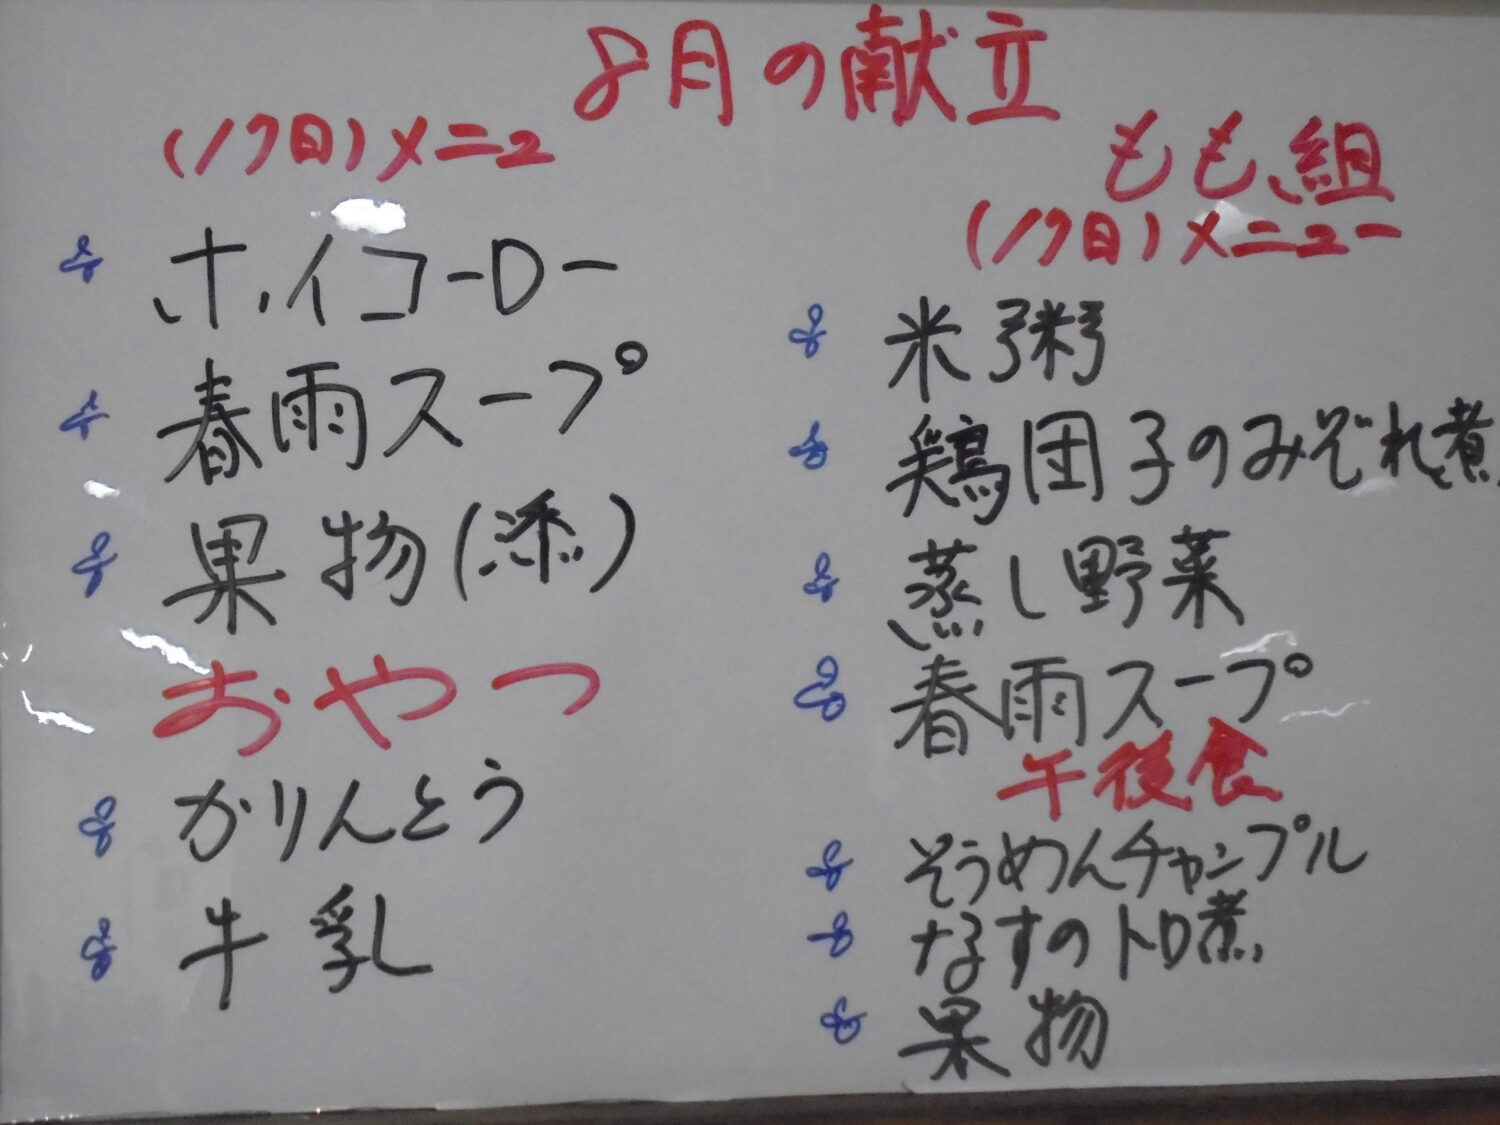 8月の献立
(17日)メニュ
ホイコーロー
春雨スープ
果物(添)
おやつ
かりんとう
牛乳
もも組
(17日)メニュー
米粥
鶏団子のみぞれ煮
蒸し野菜
春雨スープ
午後食
そうめんチャンプル
なすのトロ煮
果物